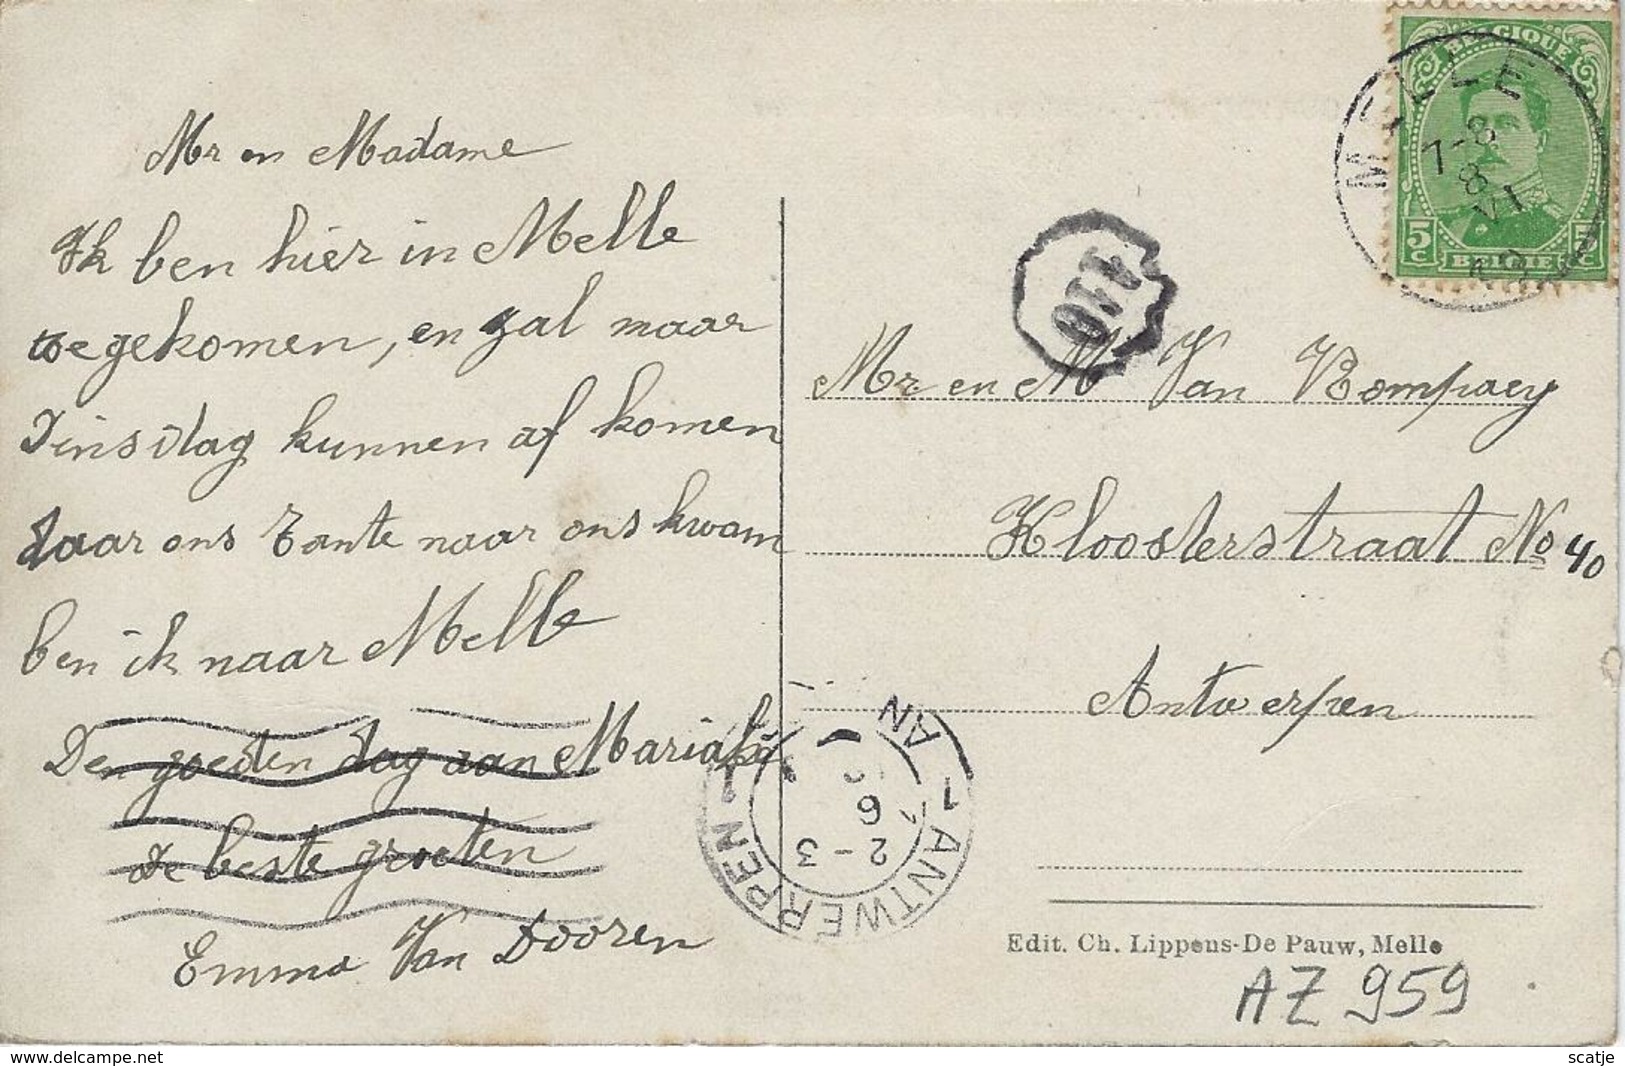 Mr en Madame
Ik ben hier in Melle
toegekomen, en zal maar
Dinsdag kunnen af komen
daar ons Tante naar ons kwam
ben ik naar Melle
Den goeden dag aan Maria
de beste groeten
Emma Van Dooren
BELGIQUE
5 C
5 C
BELGIE
MELLE
7-8
8
VI
19
Mr en M Van Rompaey
Kloosterstraat No 40
Antwerpen
1 ANTWERPEN 1
AN
2-3
6
Edit. Ch. Lippens-De Pauw, Melle
AZ 959
https://www.delcampe.net
scatje